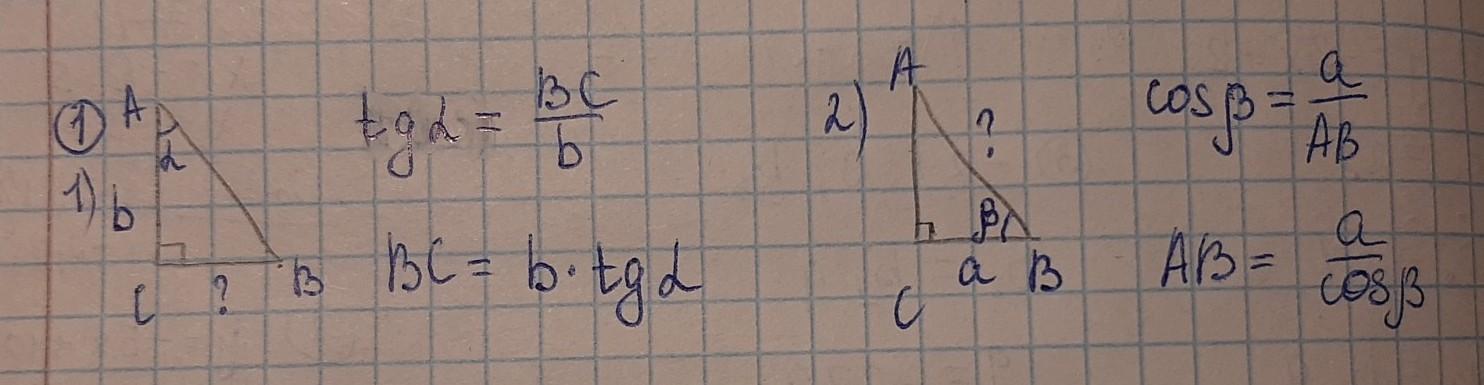 ① A
α
1) b
C ? B
tg α = BC/b
BC = b · tg α
2) A
?
β
C a B
cos β = a/AB
AB = a/cos β